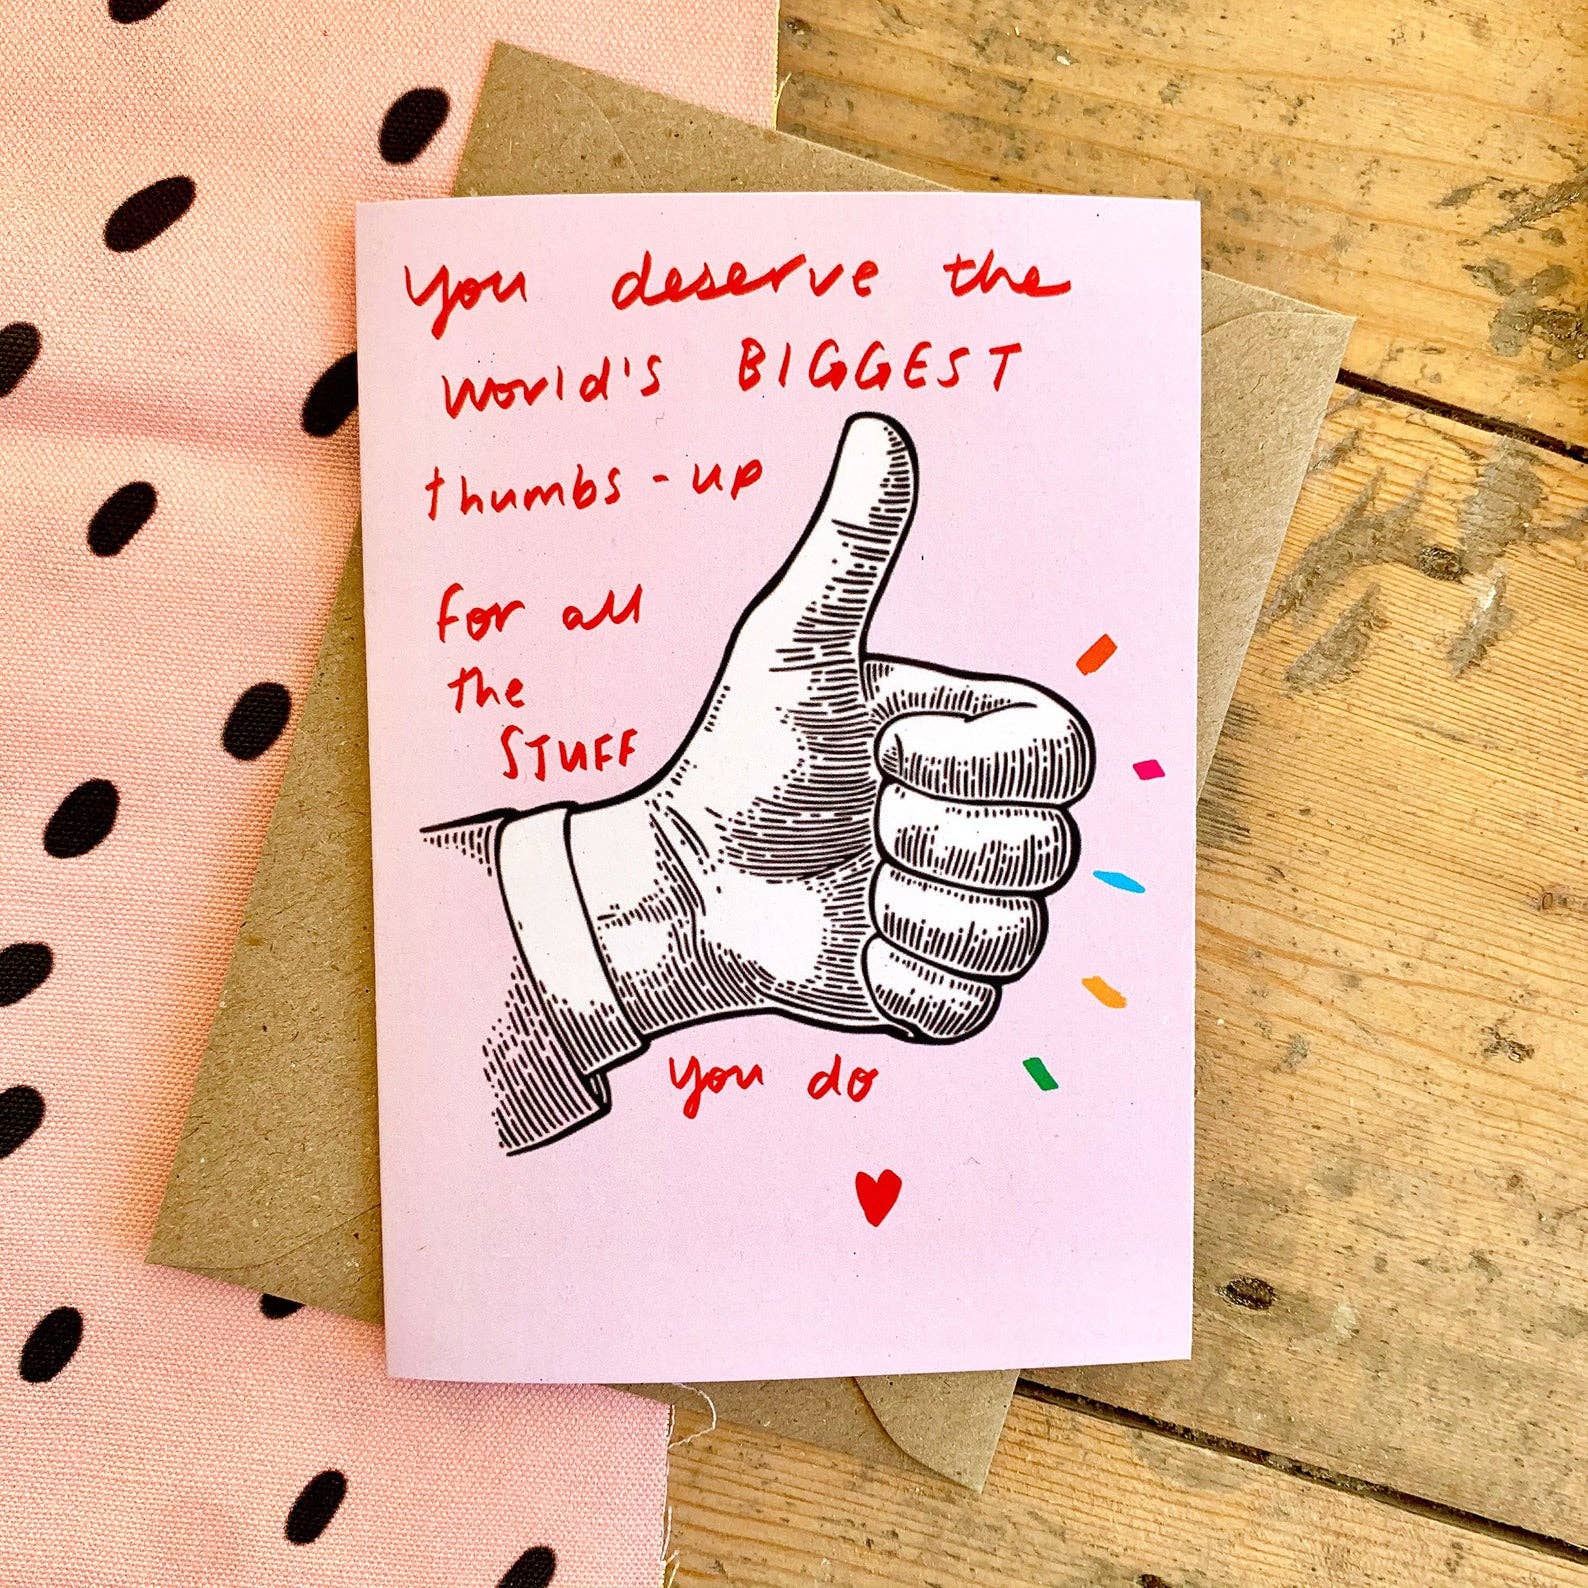 You deserve the
world's BIGGEST
thumbs-up
for all
the
STUFF
You do